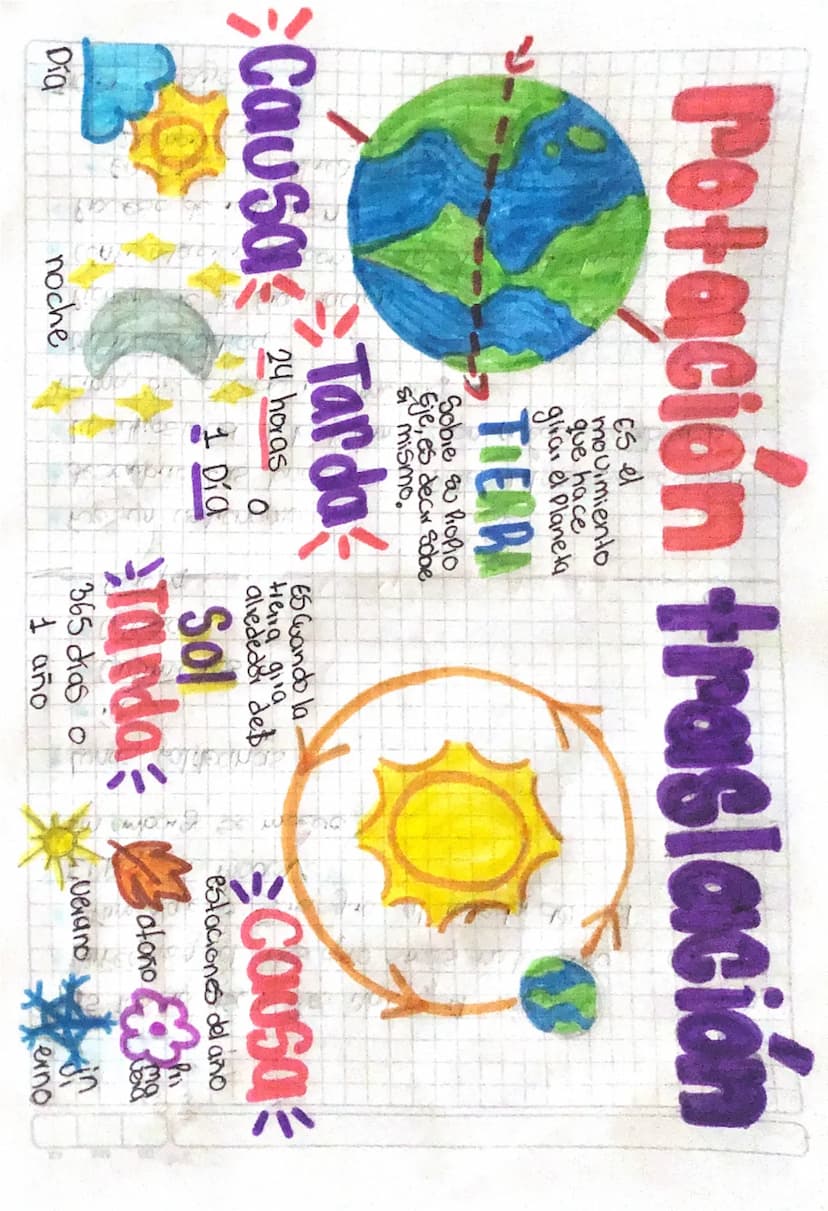 rotación
es el
movimiento
que hace
girar el planeta
TIERRA
sobre su propio
eje, es decir sobre
si mismo.
Tarda
24 horas o
1 Día
Causa
Día
noche
traslación
es cuando la
tierra gira
alrededor del
Sol
Tarda
365 días o
1 año
Causa
estaciones del año
otoño
verano
in
vi
erno